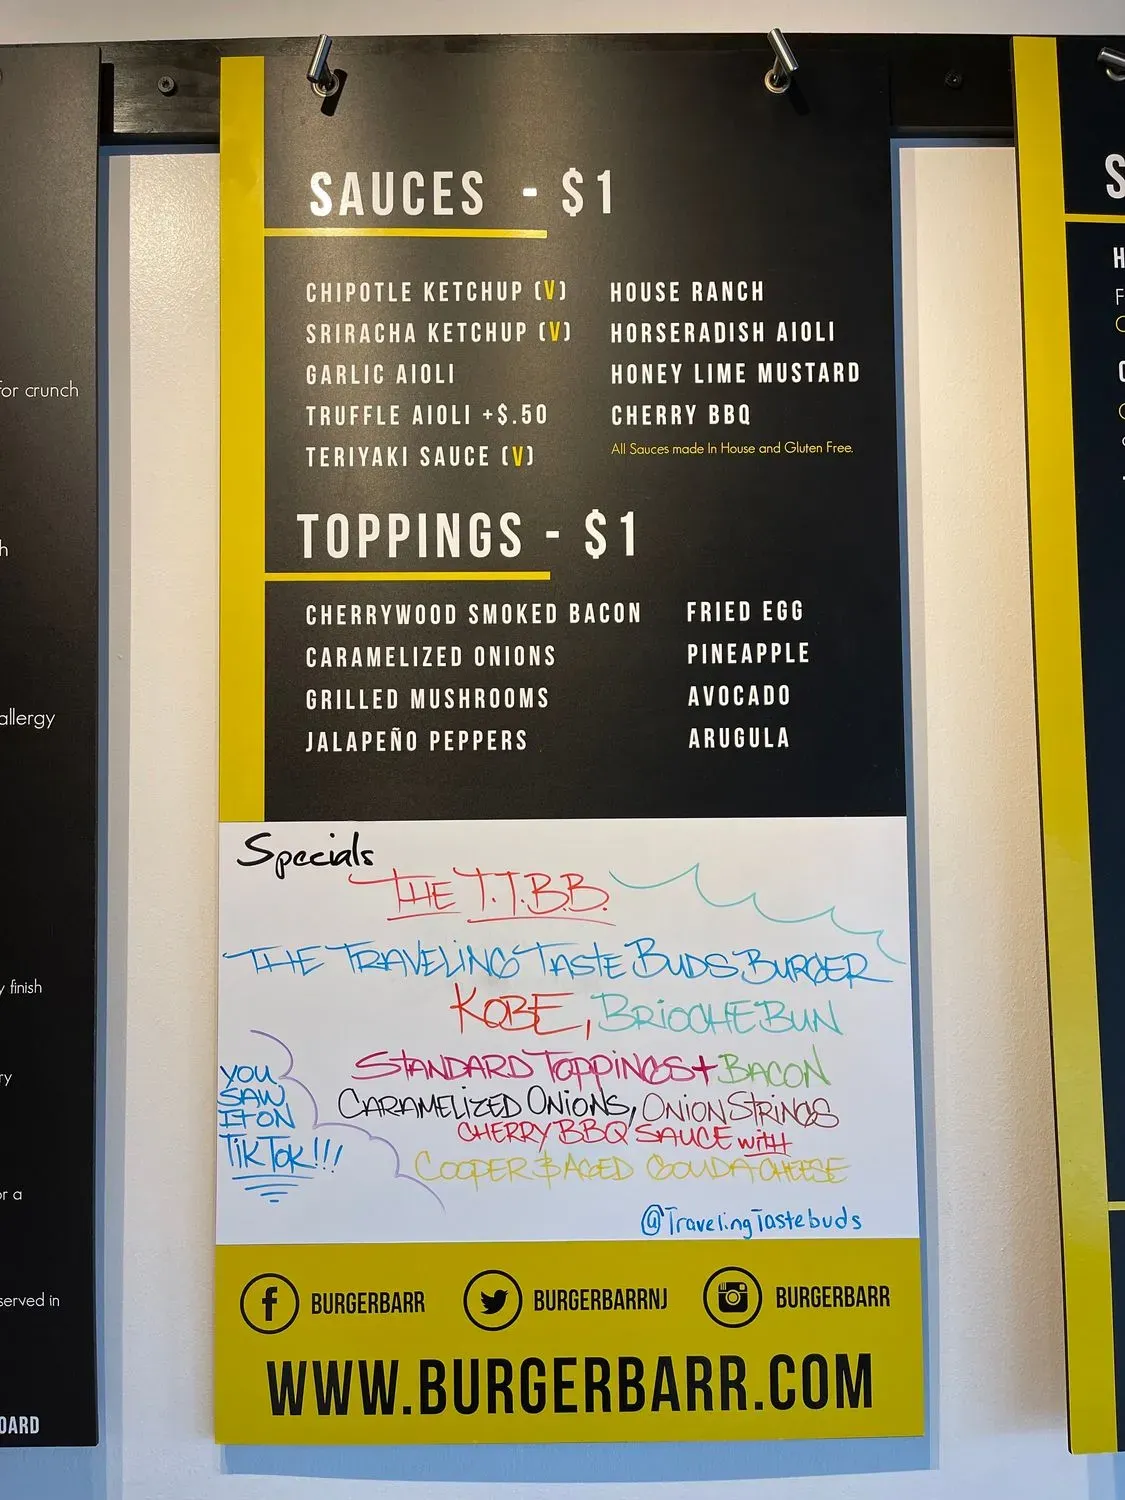 SAUCES - $1
CHIPOTLE KETCHUP (V)
SRIRACHA KETCHUP (V)
GARLIC AIOLI
TRUFFLE AIOLI +$.50
TERIYAKI SAUCE (V)
HOUSE RANCH
HORSERADISH AIOLI
HONEY LIME MUSTARD
CHERRY BBQ
All Sauces made In House and Gluten Free.
TOPPINGS - $1
CHERRYWOOD SMOKED BACON
CARAMELIZED ONIONS
GRILLED MUSHROOMS
JALAPEÑO PEPPERS
FRIED EGG
PINEAPPLE
AVOCADO
ARUGULA
Specials
THE T.T.B.B.
THE TRAVELING TASTE BUDS BURGER
KOBE, BRIOCHE BUN
STANDARD TOPPINGS + BACON
CARAMELIZED ONIONS, ONION STRINGS
CHERRY BBQ SAUCE with
COOPER $ AGED GOUDA CHEESE
YOU
SAW
IT ON
TIKTOK!!!
@TravelingTastebuds
BURGERBARR
BURGERBARRNJ
BURGERBARR
WWW.BURGERBARR.COM
for crunch
h
allergy
y finish
ry
or a
served in
OARD